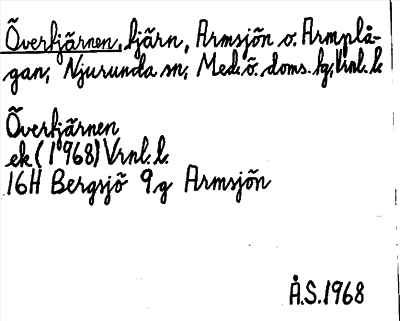 Överkjärnen, kjärn, Armsjön o. Armplå-
gan, Njurunda sn, Med. ö. doms. hg, Vrnl. l.
Överkjärnen
ek (1968) Vrnl. l.
16H Bergsjö 9g Armsjön
Å.S. 1968